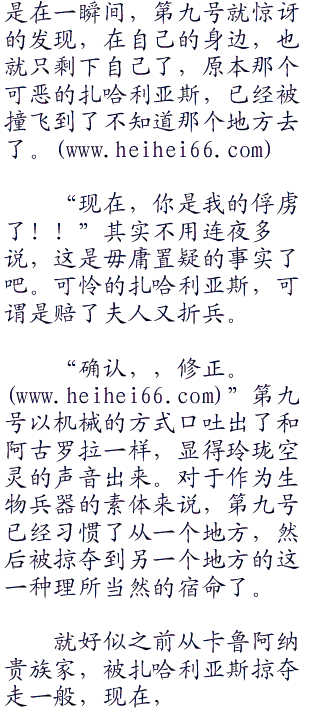 是在一瞬间，第九号就惊讶
的发现，在自己的身边，也
就只剩下自己了，原本那个
可恶的扎哈利亚斯，已经被
撞飞到了不知道那个地方去
了。(www.heihei66.com)
“现在，你是我的俘虏
了！！”其实不用连夜多
说，这是毋庸置疑的事实了
吧。可怜的扎哈利亚斯，可
谓是赔了夫人又折兵。
“确认，，修正。
(www.heihei66.com)”第九
号以机械的方式口吐出了和
阿古罗拉一样，显得玲珑空
灵的声音出来。对于作为生
物兵器的素体来说，第九号
已经习惯了从一个地方，然
后被掠夺到另一个地方的这
一种理所当然的宿命了。
就好似之前从卡鲁阿纳
贵族家，被扎哈利亚斯掠夺
走一般，现在，